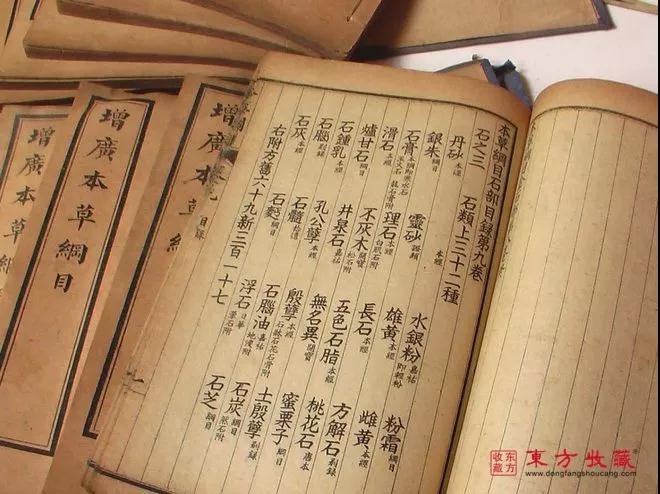 本草綱目石部目録第九卷
石之三 石類上三十二種
丹砂 本經 本經 水銀粉 嘉祐即輕粉 粉霜 綱目
銀朱 綱目 靈砂 證類 雄黃 本經 雌黃 本經
石膏 本經 理石 本經白肌石附 長石 本經 方解石 别録
滑石 本經 不灰木 開寶松石附 五色石脂 本經 桃花石 唐本
爐甘石 綱目 井泉石 嘉祐 無名異 開寶 蜜栗子 綱目
石鍾乳 本經 孔公孽 本經 殷孽 本經石牀石花石骨附 土殷孽 别録
石腦 别録 石髓 拾遺 石腦油 嘉祐地溲附 石炭 綱目然石附
石灰 本經 石麪 綱目 浮石 日華暈石附 石芝 綱目
右附方舊六十九新三百一十七
七
增廣本草綱目
增廣本草綱目
增廣本草綱
目錄
東方收藏
東方收藏
www.dongfangshoucang.com